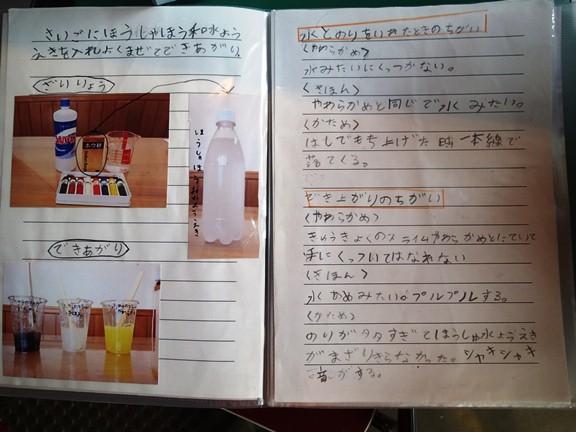 さいごにほうしゃほう和水よう
えきを入れよくまぜてできあがり
ざいりょう
ホウ砂
できあがり
水とのりをいれたときのちがい
〈やわらかめ〉
水みたいにくっつかない。
〈きほん〉
やわらかめと同じで水みたい。
〈かため〉
はしでもち上げた時一本線で
落てくる。
でき上がりのちがい
〈やわらかめ〉
きゅうきょくのスライムやわらかめとにていて
手にくっついてはなれない
〈きほん〉
水かめみたい。プルプルする。
〈かため〉
のりが多すぎてほうしゃ水ようえき
がまざりきらなかった。シャキシャキ
音がする。